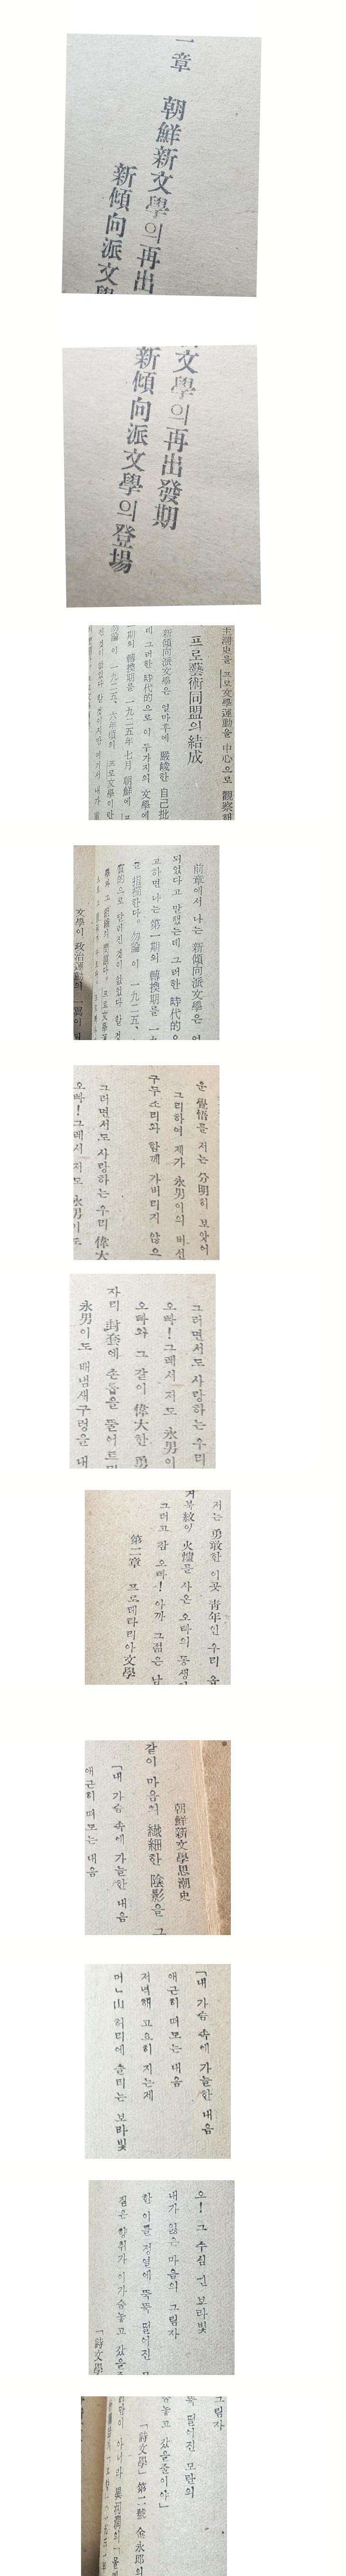 一章　朝鮮新文學의再出
新傾向派文學
文學의再出發期
新傾向派文學의登場
主潮史를 프로文學運動을 中心으로 觀察
프로藝術同盟의結成
新傾向派文學은 얼마후에 嚴峻한 自己批
데 그러한 時代的으로 이 두가지의 文學에
期의 轉換期를 一九二五年七月 朝鮮에
勿論 이 一九二五、六年頃의 프로文學이란
진 것이 없었다 할 것이지만 여기서 내가
前章에서 나는 新傾向派文學은
되었다고 말했는데 그러한 時代的
고하면 나는 第一期의 轉換期를 一
를 指摘한다。勿論 이 一九二五、
質的으로 달라진 것이 없었다 할 것
文學이 政治運動의 一翼이
운 覺悟를 저는 分明히 보았어
그리하여 제가 永男이의 버선
구두소리와 함께 가버리지 않으
그러면서도 사랑하는 우리 偉大
오빠！그래서 저도 永男이도
그러면서도 사랑하는 우리
오빠！그래서 저도 永男이
오빠와 그 같이 偉大한 勇
자리 封套에 손톱을 뚫어트
永男이도 배냄새구렁을 내
저는 勇敢한 이곳 靑年인 우리 용
거북紋이 火爐를 사온 오빠의 동생
그러고 참 오빠！아까 그젊은 남
第二章　프로레타리아文學
朝鮮新文學思潮史
같이 마음의 纎細한 陰影을 그
「내 가슴 속에 가늘한 내음
애끈히 떠도는 내음
「내 가슴 속에 가늘한 내음
애끈히 떠도는 내음
저녁해 고요히 지는제
머ㄴ山 허리에 슬리는 보라빛
오！그 수심 띤 보라빛
내가 잃은 마음의 그림자
한 이틀 정열에 뚝뚝 떨어진 모
짙은 향취가 이가슴놓고 갔을
「詩文學
그림자
뚝 떨어진 모란의
슴놓고 갔을줄이야」
「詩文學」第二號 金永郎의
뿐만이 아니라 異河潤의「물